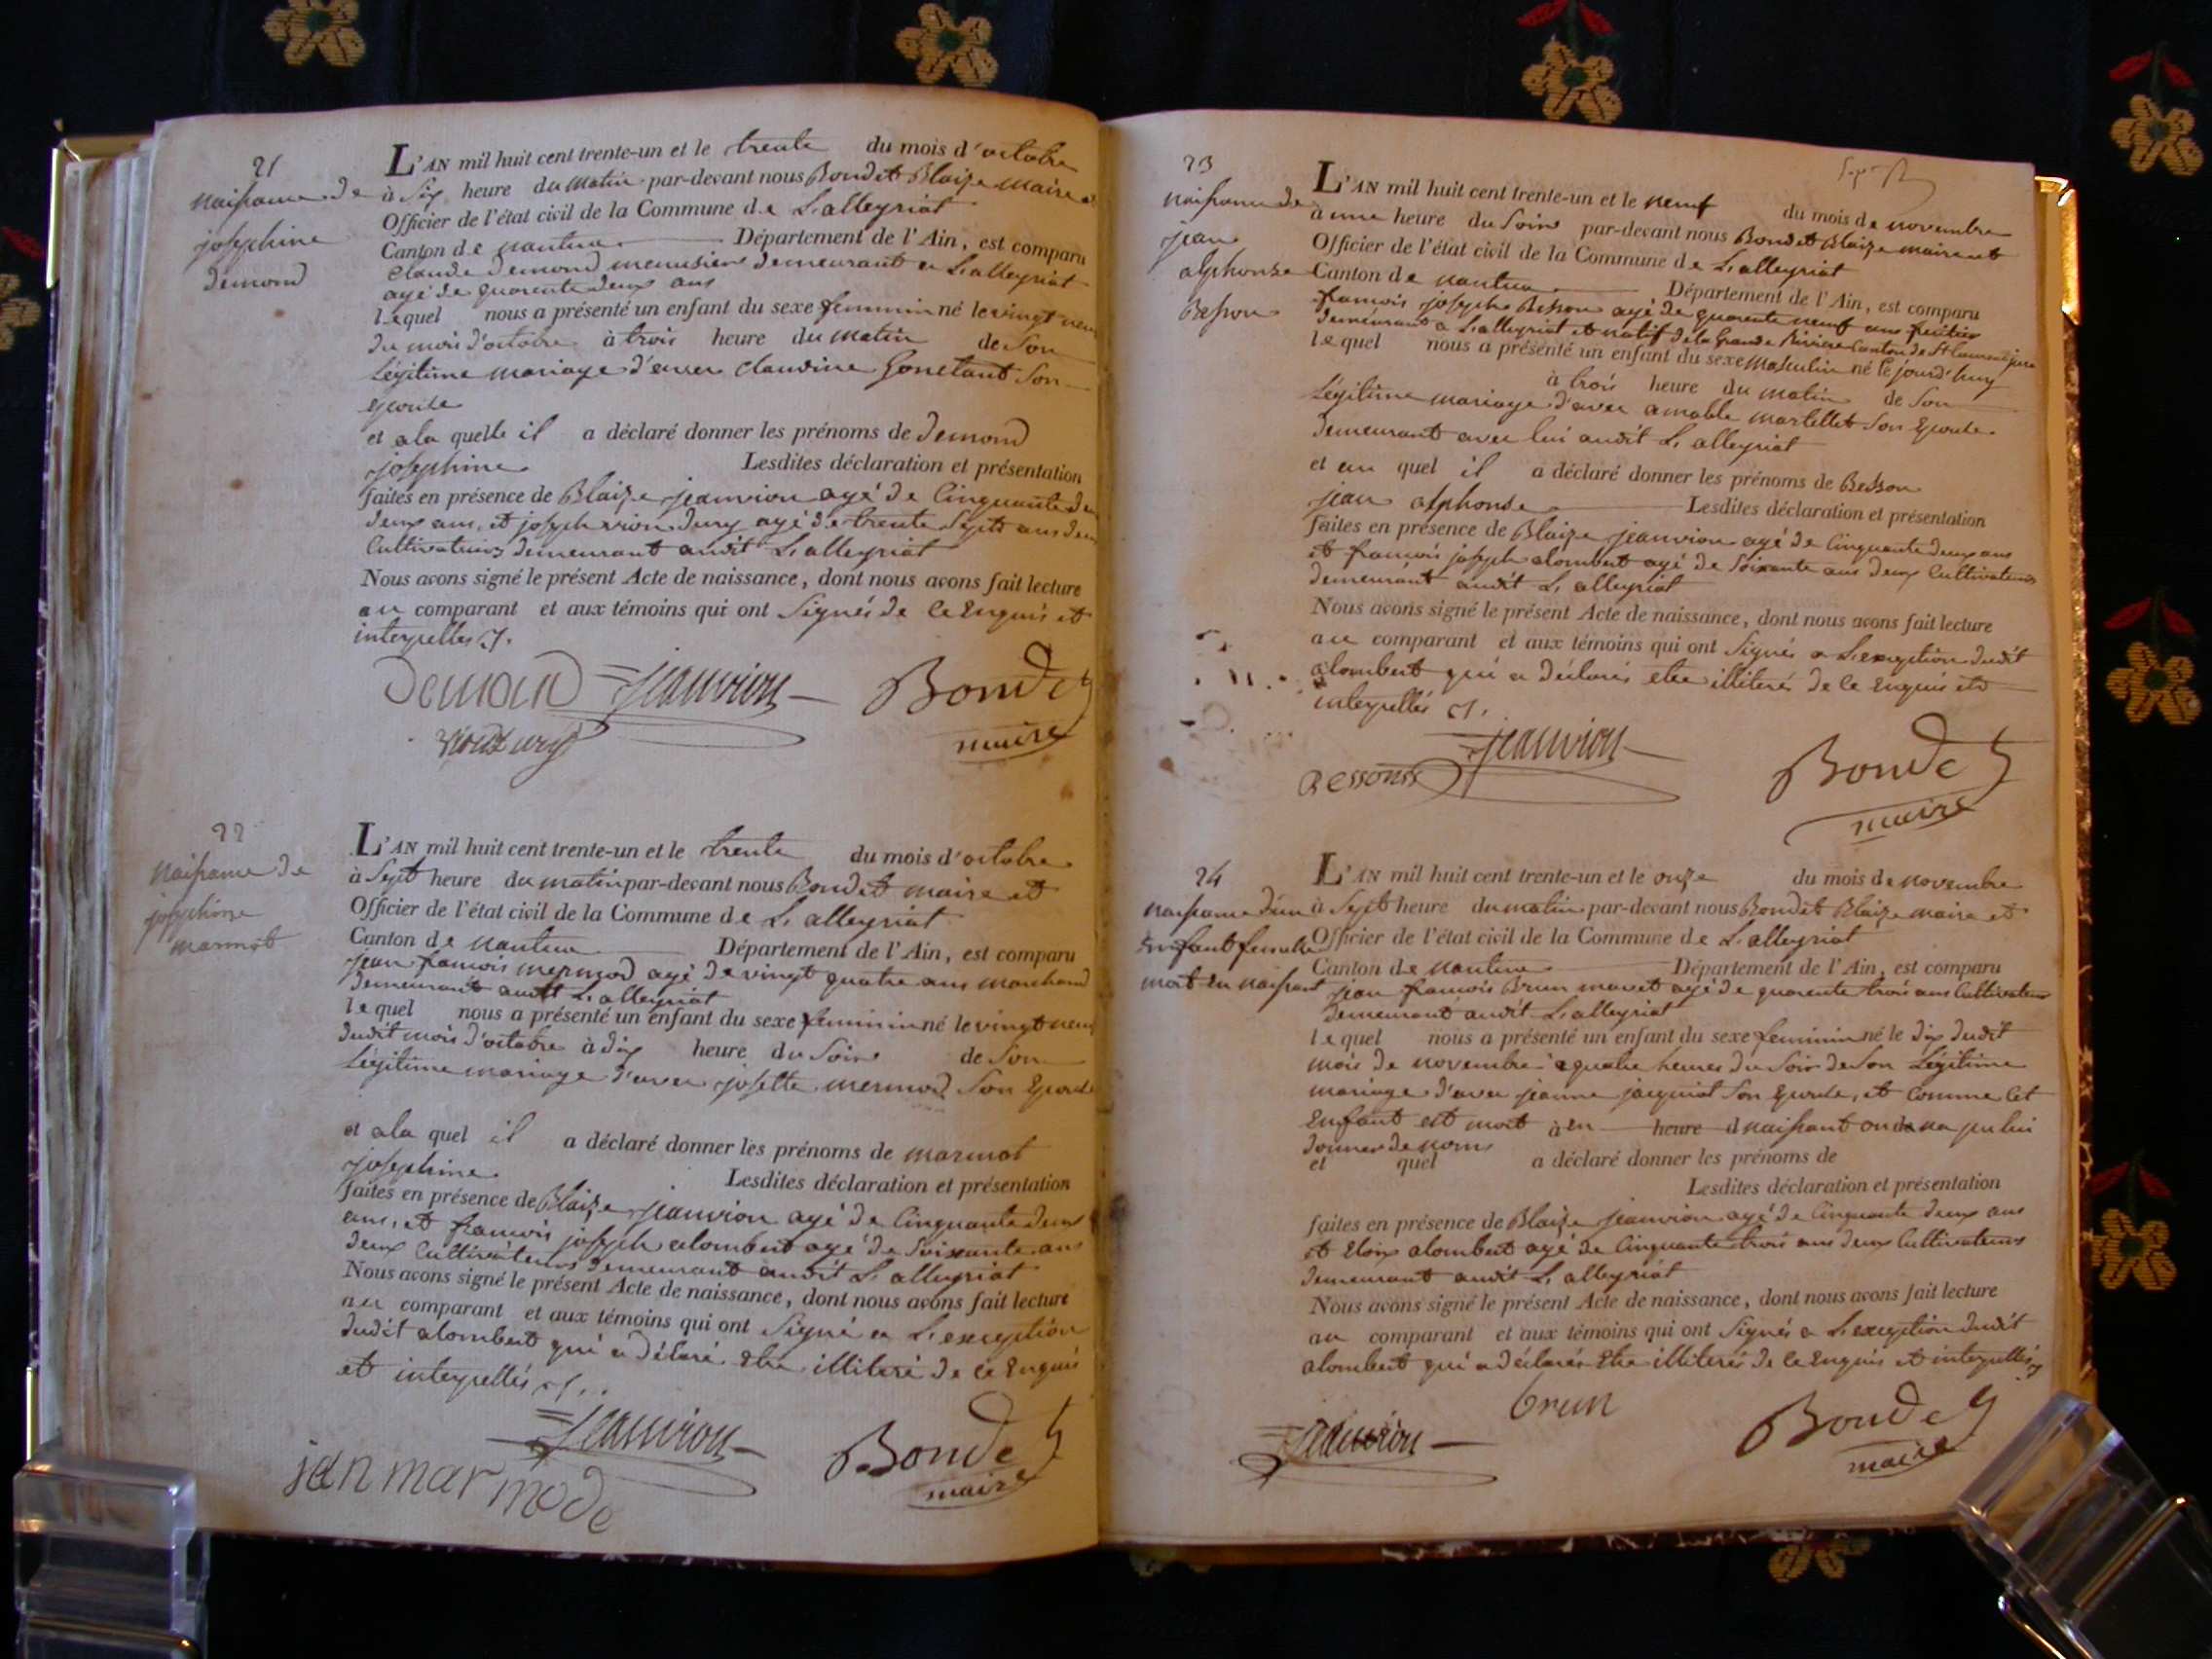 21
naissance de
josephine
demond
L'AN mil huit cent trente-un et le trente du mois d'octobre
à six heure du matin par-devant nous Bondet Blaize maire et
Officier de l'état civil de la Commune de L'alleyriat
Canton de nantua Département de l'Ain, est comparu
Claude Demond menuisier demeurant a L'alleyriat
agé de quarente deux ans
lequel nous a présenté un enfant du sexe feminin né le vingt neuf
du mois d'octobre à trois heure du matin de son
légitime mariage d'avec claudine Gonetant son
epouse
et a la quelle il a déclaré donner les prénoms de demond
josephine Lesdites déclaration et présentation
faites en présence de Blaize jeanvion agé de Cinquante
deux ans, et joseph vion dury agé de trente sept ans deux
Cultivateurs demeurant audit L'alleyriat
Nous avons signé le présent Acte de naissance, dont nous avons fait lecture
au comparant et aux témoins qui ont signés de ce enquis et
interpelles ./.
Demond jeanvion Bondet
viondury maire
22
naissance de
josephine
marmot
L'AN mil huit cent trente-un et le trente du mois d'octobre
à sept heure du matin par-devant nous Bondet maire et
Officier de l'état civil de la Commune de L'alleyriat
Canton de nantua Département de l'Ain, est comparu
jean francois mermod agé de vingt quatre ans marchand
demeurant audit L'alleyriat
lequel nous a présenté un enfant du sexe feminin né le vingt neuf
dudit mois d'octobre à dix heure du soir de son
légitime mariage d'avec josette mermod son epouse
et a la quel il a déclaré donner les prénoms de marmot
josephine Lesdites déclaration et présentation
faites en présence de Blaize jeanvion agé de Cinquante deux
ans, et francois joseph alombert agé de soixante ans
deux Cultivateurs demeurant audit L'alleyriat
Nous avons signé le présent Acte de naissance, dont nous avons fait lecture
au comparant et aux témoins qui ont signé a L'exception
dudit alombert qui a déclaré etre illiteré de ce enquis
et interpellés ./.
jeanvion Bondet
jan marmode maire
23
naissance de
jean
alphonse
Besson
L'AN mil huit cent trente-un et le neuf du mois de novembre
à une heure du soir par-devant nous Bondet Blaize maire et
Officier de l'état civil de la Commune de L'alleyriat
Canton de nantua Département de l'Ain, est comparu
francois joseph Besson agé de quarente neuf ans fruitier
demeurant a L'alleyriat et natif de la Grande Riviere Canton de St Laurent jura
lequel nous a présenté un enfant du sexe masculin né le jourd'huy
à trois heure du matin de son
légitime mariage d'avec amable martellet son epouse
demeurant avec lui audit L'alleyriat
et au quel il a déclaré donner les prénoms de Besson
jean alphonse Lesdites déclaration et présentation
faites en présence de Blaize jeanvion agé de Cinquante deux ans
et francois joseph alombert agé de soixante ans deux Cultivateurs
demeurant audit L'alleyriat
Nous avons signé le présent Acte de naissance, dont nous avons fait lecture
au comparant et aux témoins qui ont signés a L'exception dudit
alombert qui a déclaré etre illiterés de ce enquis et
interpellés ./.
jeanvion
Bessonss Bondet
maire
24
naissance d'un
Enfant femelle
mort en naissant
L'AN mil huit cent trente-un et le onze du mois de novembre
à sept heure du matin par-devant nous Bondet Blaize maire et
Officier de l'état civil de la Commune de L'alleyriat
Canton de nantua Département de l'Ain, est comparu
jean francois Brun mavet agé de quarente trois ans Cultivateur
demeurant audit L'alleyriat
lequel nous a présenté un enfant du sexe feminin né le dix dudit
mois de novembre a quatre heures du soir de son légitime
mariage d'avec jeanne jacquiot son epouse, et comme cet
enfant est mort à en heure d naissant on na pu lui
donner de noms
et quel a déclaré donner les prénoms de
Lesdites déclaration et présentation
faites en présence de Blaize jeanvion agé de Cinquante deux ans
et Eloix alombert agé de Cinquante trois ans deux Cultivateurs
demeurant audit L'alleyriat
Nous avons signé le présent Acte de naissance, dont nous avons fait lecture
au comparant et aux témoins qui ont signés a L'exception dudit
alombert qui a déclaré etre illiterés de ce enquis et interpellés
brun
jeanvion Bondet
maire